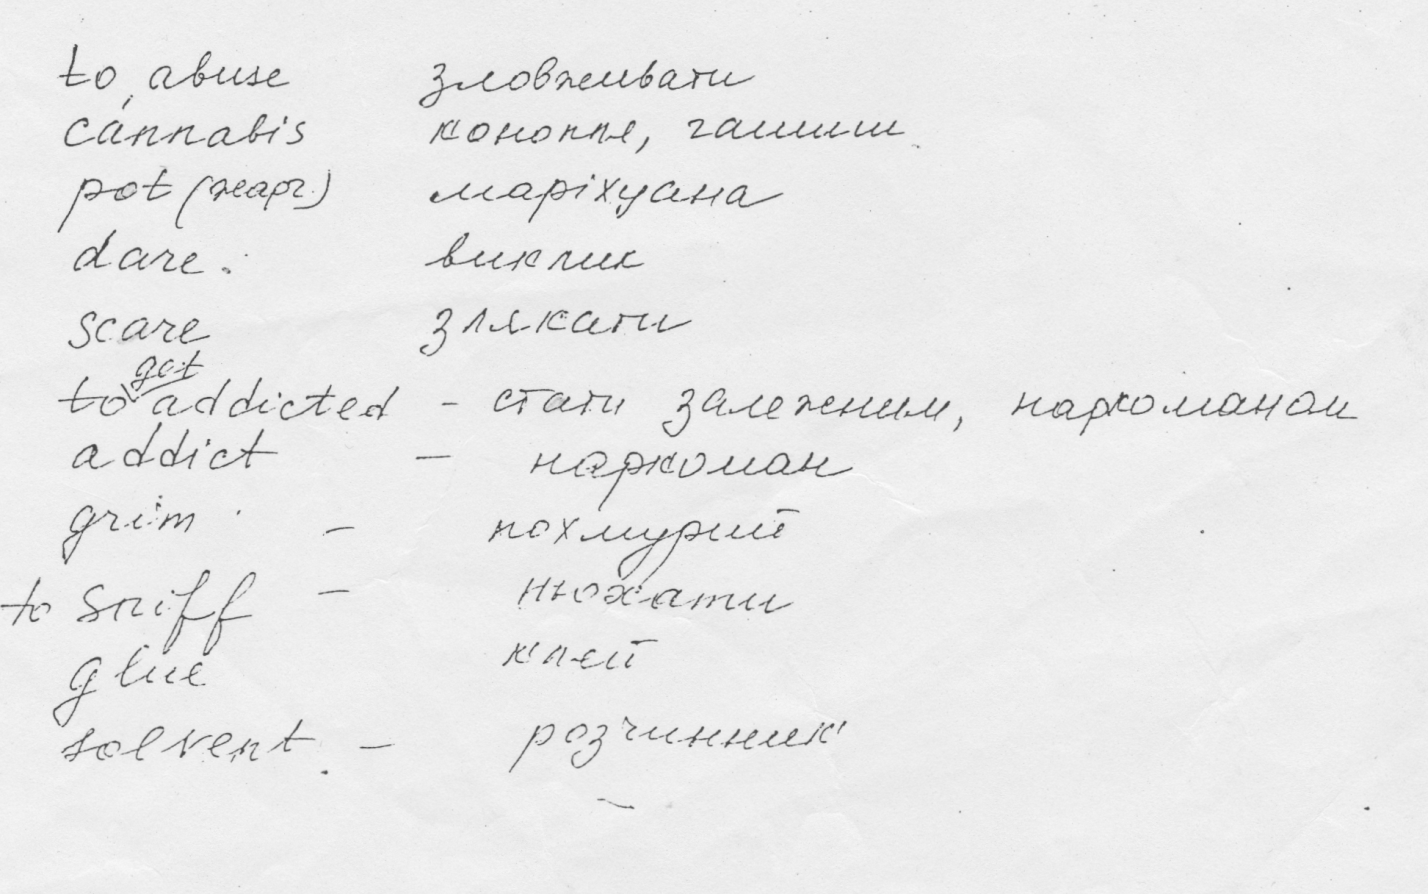 to abuse зловживати
cánnabis конопля, гашиш
pot (жарг.) маріхуана
dare. виклик
scare злякати
to get addicted - стати залежним, наркоманом
addict - наркоман
grim - похмурий
to sniff - нюхати
glue клей
solvent. - розчинник